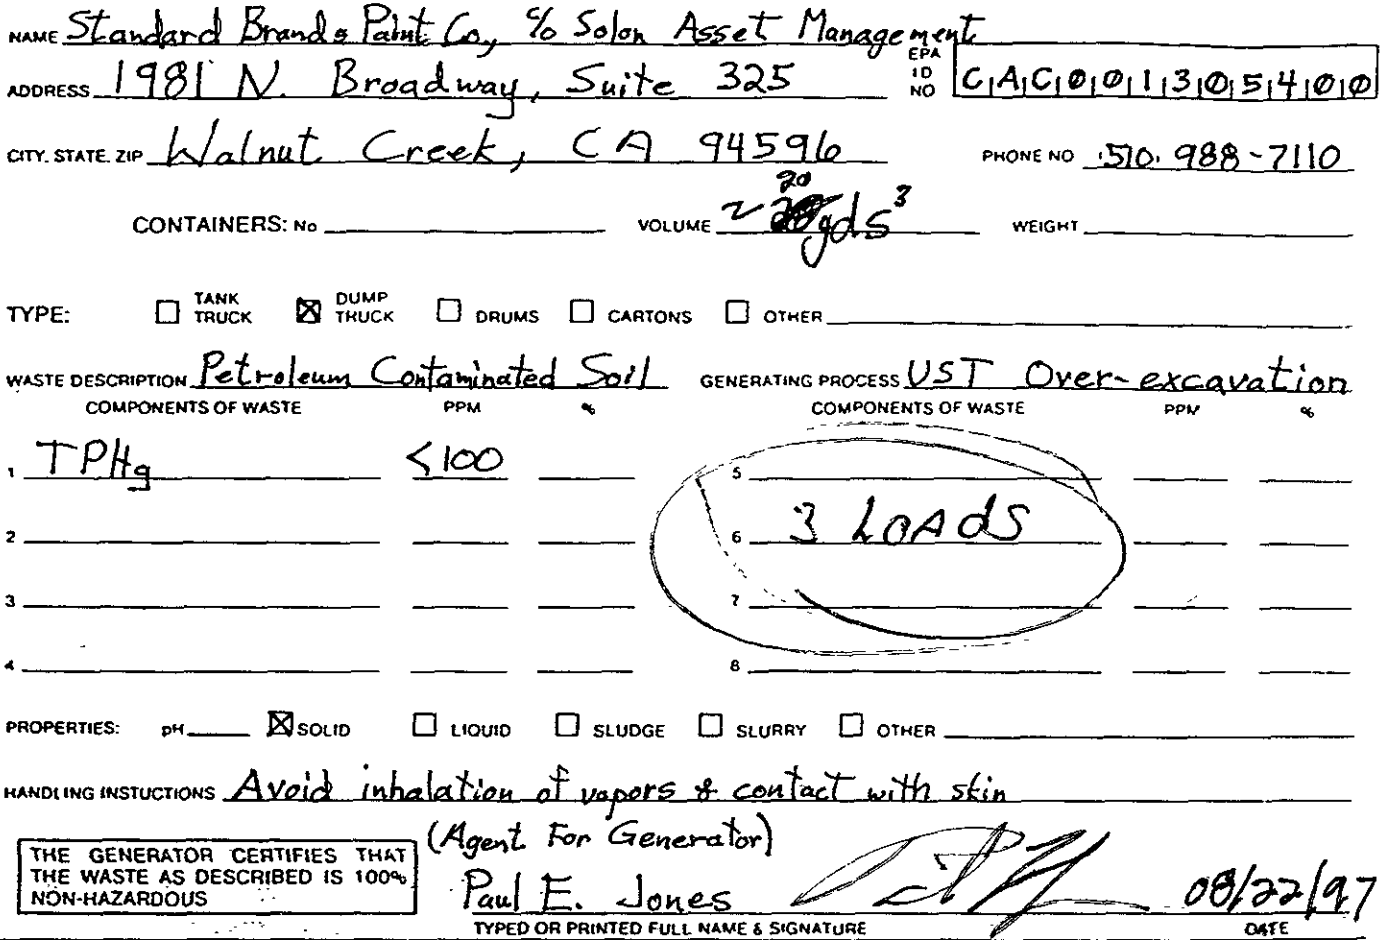 NAME Standard Brands Paint Co, c/o Solon Asset Management
ADDRESS 1981 N. Broadway, Suite 325 EPA ID NO CAC001305400
CITY. STATE. ZIP Walnut Creek, CA 94596 PHONE NO 510. 988-7110
CONTAINERS: No VOLUME ~ 20 yds³ WEIGHT
TYPE: ☐ TANK TRUCK ☒ DUMP TRUCK ☐ DRUMS ☐ CARTONS ☐ OTHER
WASTE DESCRIPTION Petroleum Contaminated Soil GENERATING PROCESS UST Over-excavation
COMPONENTS OF WASTE PPM % COMPONENTS OF WASTE PPM %
1 TPHg <100 5
2 6 3 LOADS
3 7
4 8
PROPERTIES: pH ☒ SOLID ☐ LIQUID ☐ SLUDGE ☐ SLURRY ☐ OTHER
HANDLING INSTUCTIONS Avoid inhalation of vapors & contact with skin
(Agent For Generator)
THE GENERATOR CERTIFIES THAT
THE WASTE AS DESCRIBED IS 100%
NON-HAZARDOUS
Paul E. Jones 08/22/97
TYPED OR PRINTED FULL NAME & SIGNATURE DATE